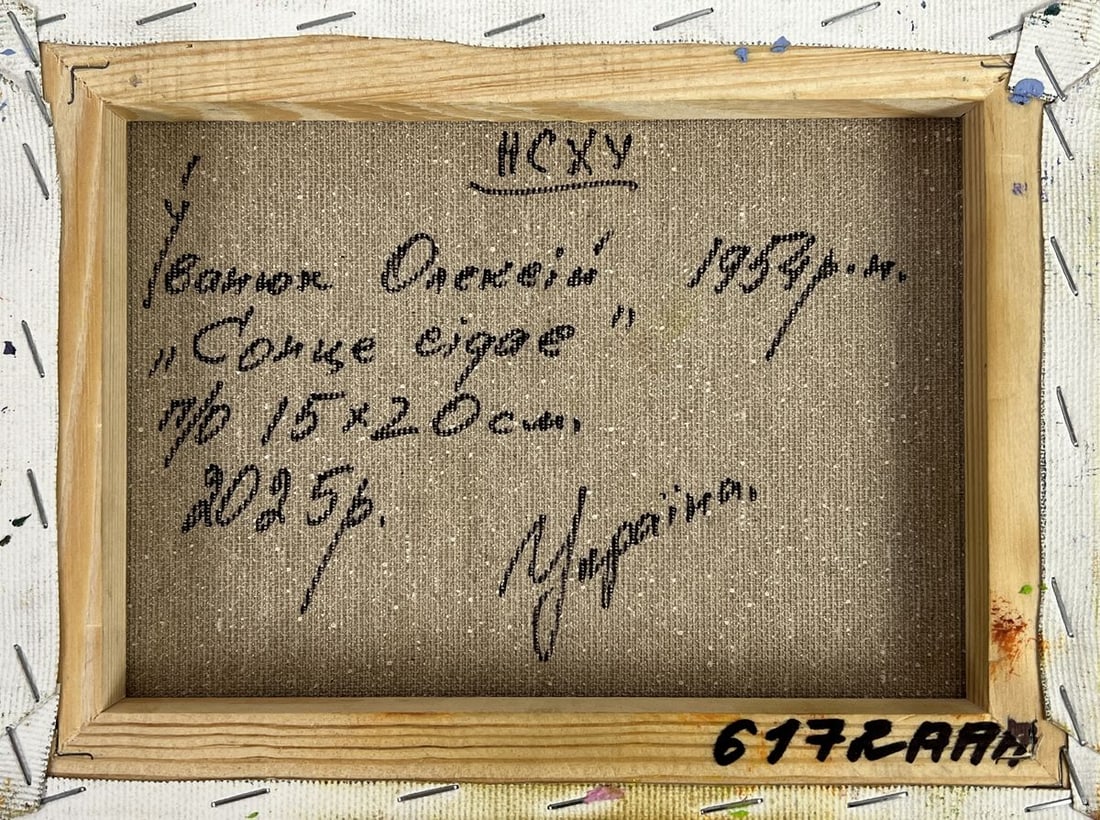 НСХУ
Іванюк Олексій 1954р.н.
„Сонце сідає"
п/о 15×20см.
2025р.
Україна.
6172ААА